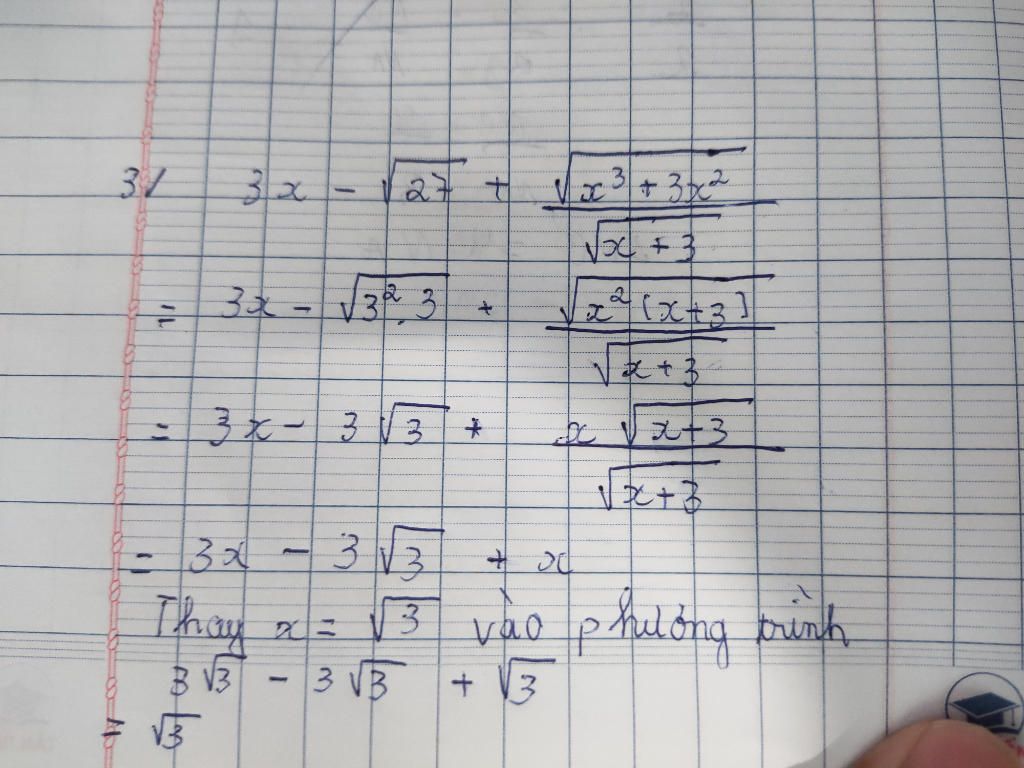 3/ 3x - √27 + √(x³ + 3x²) / √(x + 3)
= 3x - √(3² . 3) + √(x² (x+3)) / √(x+3)
= 3x - 3√3 + x √(x+3) / √(x+3)
= 3x - 3√3 + x
Thay x = √3 vào phương trình
3√3 - 3√3 + √3
= √3